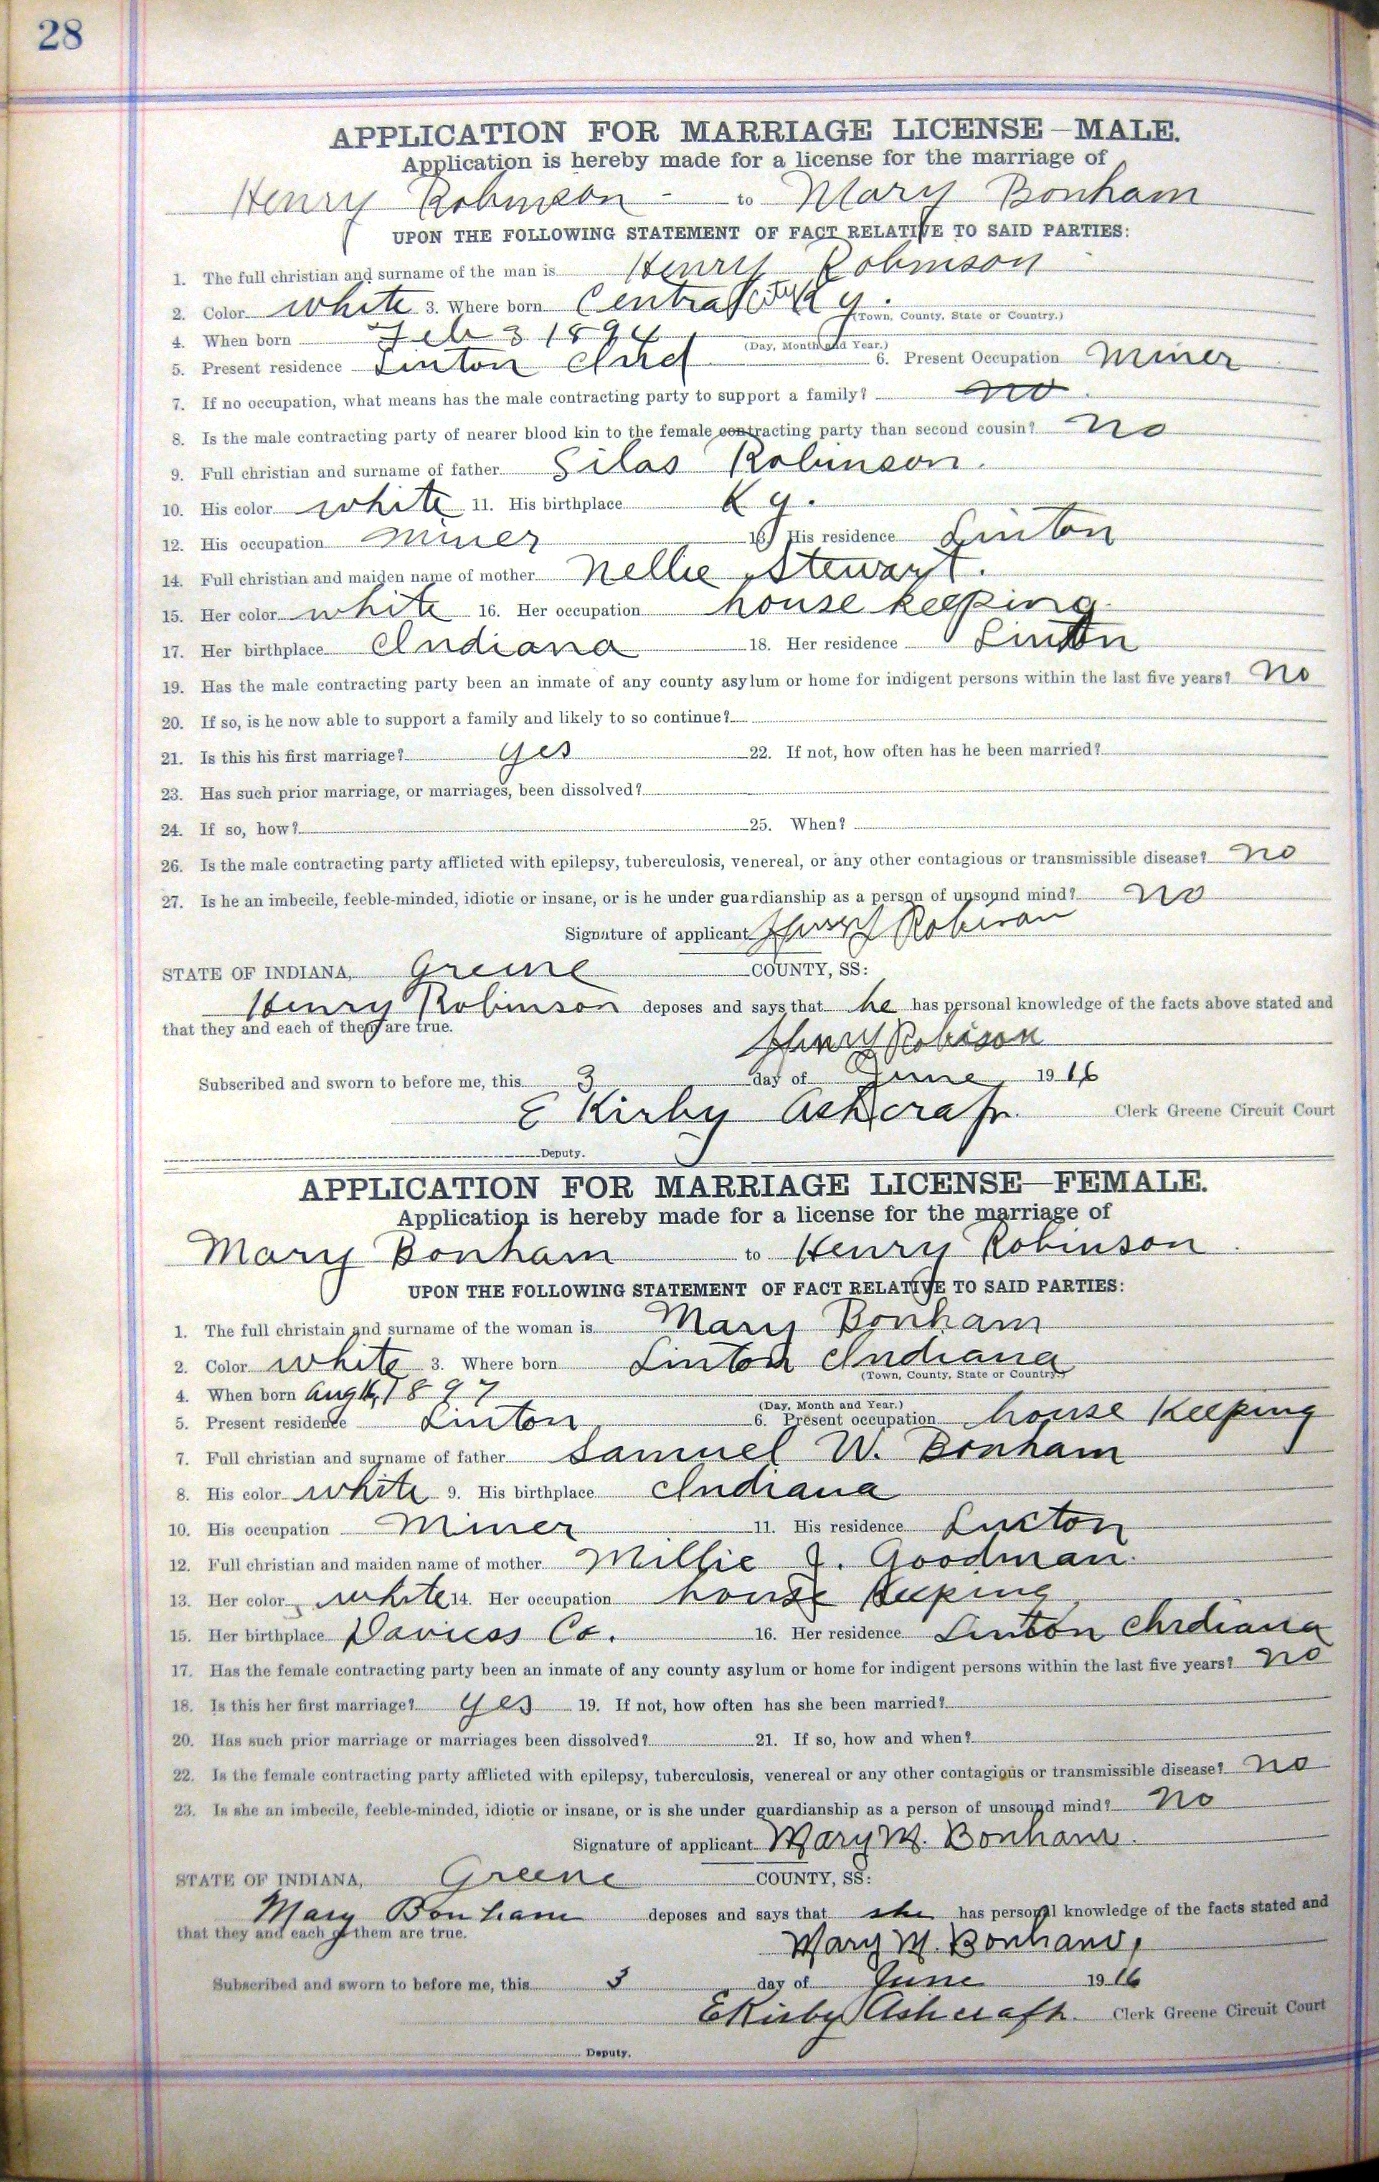 28
APPLICATION FOR MARRIAGE LICENSE—MALE.
Application is hereby made for a license for the marriage of
Henry Robinson to Mary Bonham
UPON THE FOLLOWING STATEMENT OF FACT RELATIVE TO SAID PARTIES:
1. The full christian and surname of the man is Henry Robinson
2. Color white 3. Where born Central City Ky.
(Town, County, State or Country.)
4. When born Feb 3 1894
(Day, Month and Year.)
5. Present residence Linton Ind 6. Present Occupation Miner
7. If no occupation, what means has the male contracting party to support a family? no
8. Is the male contracting party of nearer blood kin to the female contracting party than second cousin? no
9. Full christian and surname of father Silas Robinson.
10. His color white 11. His birthplace Ky.
12. His occupation miner 13. His residence Linton
14. Full christian and maiden name of mother Nellie Stewart.
15. Her color white 16. Her occupation house keeping
17. Her birthplace Indiana 18. Her residence Linton
19. Has the male contracting party been an inmate of any county asylum or home for indigent persons within the last five years? no
20. If so, is he now able to support a family and likely to so continue?
21. Is this his first marriage? yes 22. If not, how often has he been married?
23. Has such prior marriage, or marriages, been dissolved?
24. If so, how? 25. When?
26. Is the male contracting party afflicted with epilepsy, tuberculosis, venereal, or any other contagious or transmissible disease? no
27. Is he an imbecile, feeble-minded, idiotic or insane, or is he under guardianship as a person of unsound mind? no
Signature of applicant Henry Robison
STATE OF INDIANA, Greene COUNTY, SS:
Henry Robinson deposes and says that he has personal knowledge of the facts above stated and
that they and each of them are true.
Henry Robison
Subscribed and sworn to before me, this 3 day of June 1916
E Kirby Ashcraft Clerk Greene Circuit Court
Deputy.
APPLICATION FOR MARRIAGE LICENSE—FEMALE.
Application is hereby made for a license for the marriage of
Mary Bonham to Henry Robinson
UPON THE FOLLOWING STATEMENT OF FACT RELATIVE TO SAID PARTIES:
1. The full christain and surname of the woman is Mary Bonham
2. Color white 3. Where born Linton Indiana
(Town, County, State or Country.)
4. When born Aug 16, 1897
(Day, Month and Year.)
5. Present residence Linton 6. Present occupation house keeping
7. Full christian and surname of father Samuel W. Bonham
8. His color white 9. His birthplace Indiana
10. His occupation Miner 11. His residence Linton
12. Full christian and maiden name of mother Millie J. Goodman.
13. Her color white 14. Her occupation house keeping
15. Her birthplace Daviess Co. 16. Her residence Linton Indiana
17. Has the female contracting party been an inmate of any county asylum or home for indigent persons within the last five years? no
18. Is this her first marriage? yes 19. If not, how often has she been married?
20. Has such prior marriage or marriages been dissolved? 21. If so, how and when?
22. Is the female contracting party afflicted with epilepsy, tuberculosis, venereal or any other contagious or transmissible disease? no
23. Is she an imbecile, feeble-minded, idiotic or insane, or is she under guardianship as a person of unsound mind? no
Signature of applicant Mary M. Bonham.
STATE OF INDIANA, Greene COUNTY, SS:
Mary Bonham deposes and says that she has personal knowledge of the facts stated and
that they and each of them are true.
Mary M. Bonham,
Subscribed and sworn to before me, this 3 day of June 1916
E Kirby Ashcraft Clerk Greene Circuit Court
Deputy.